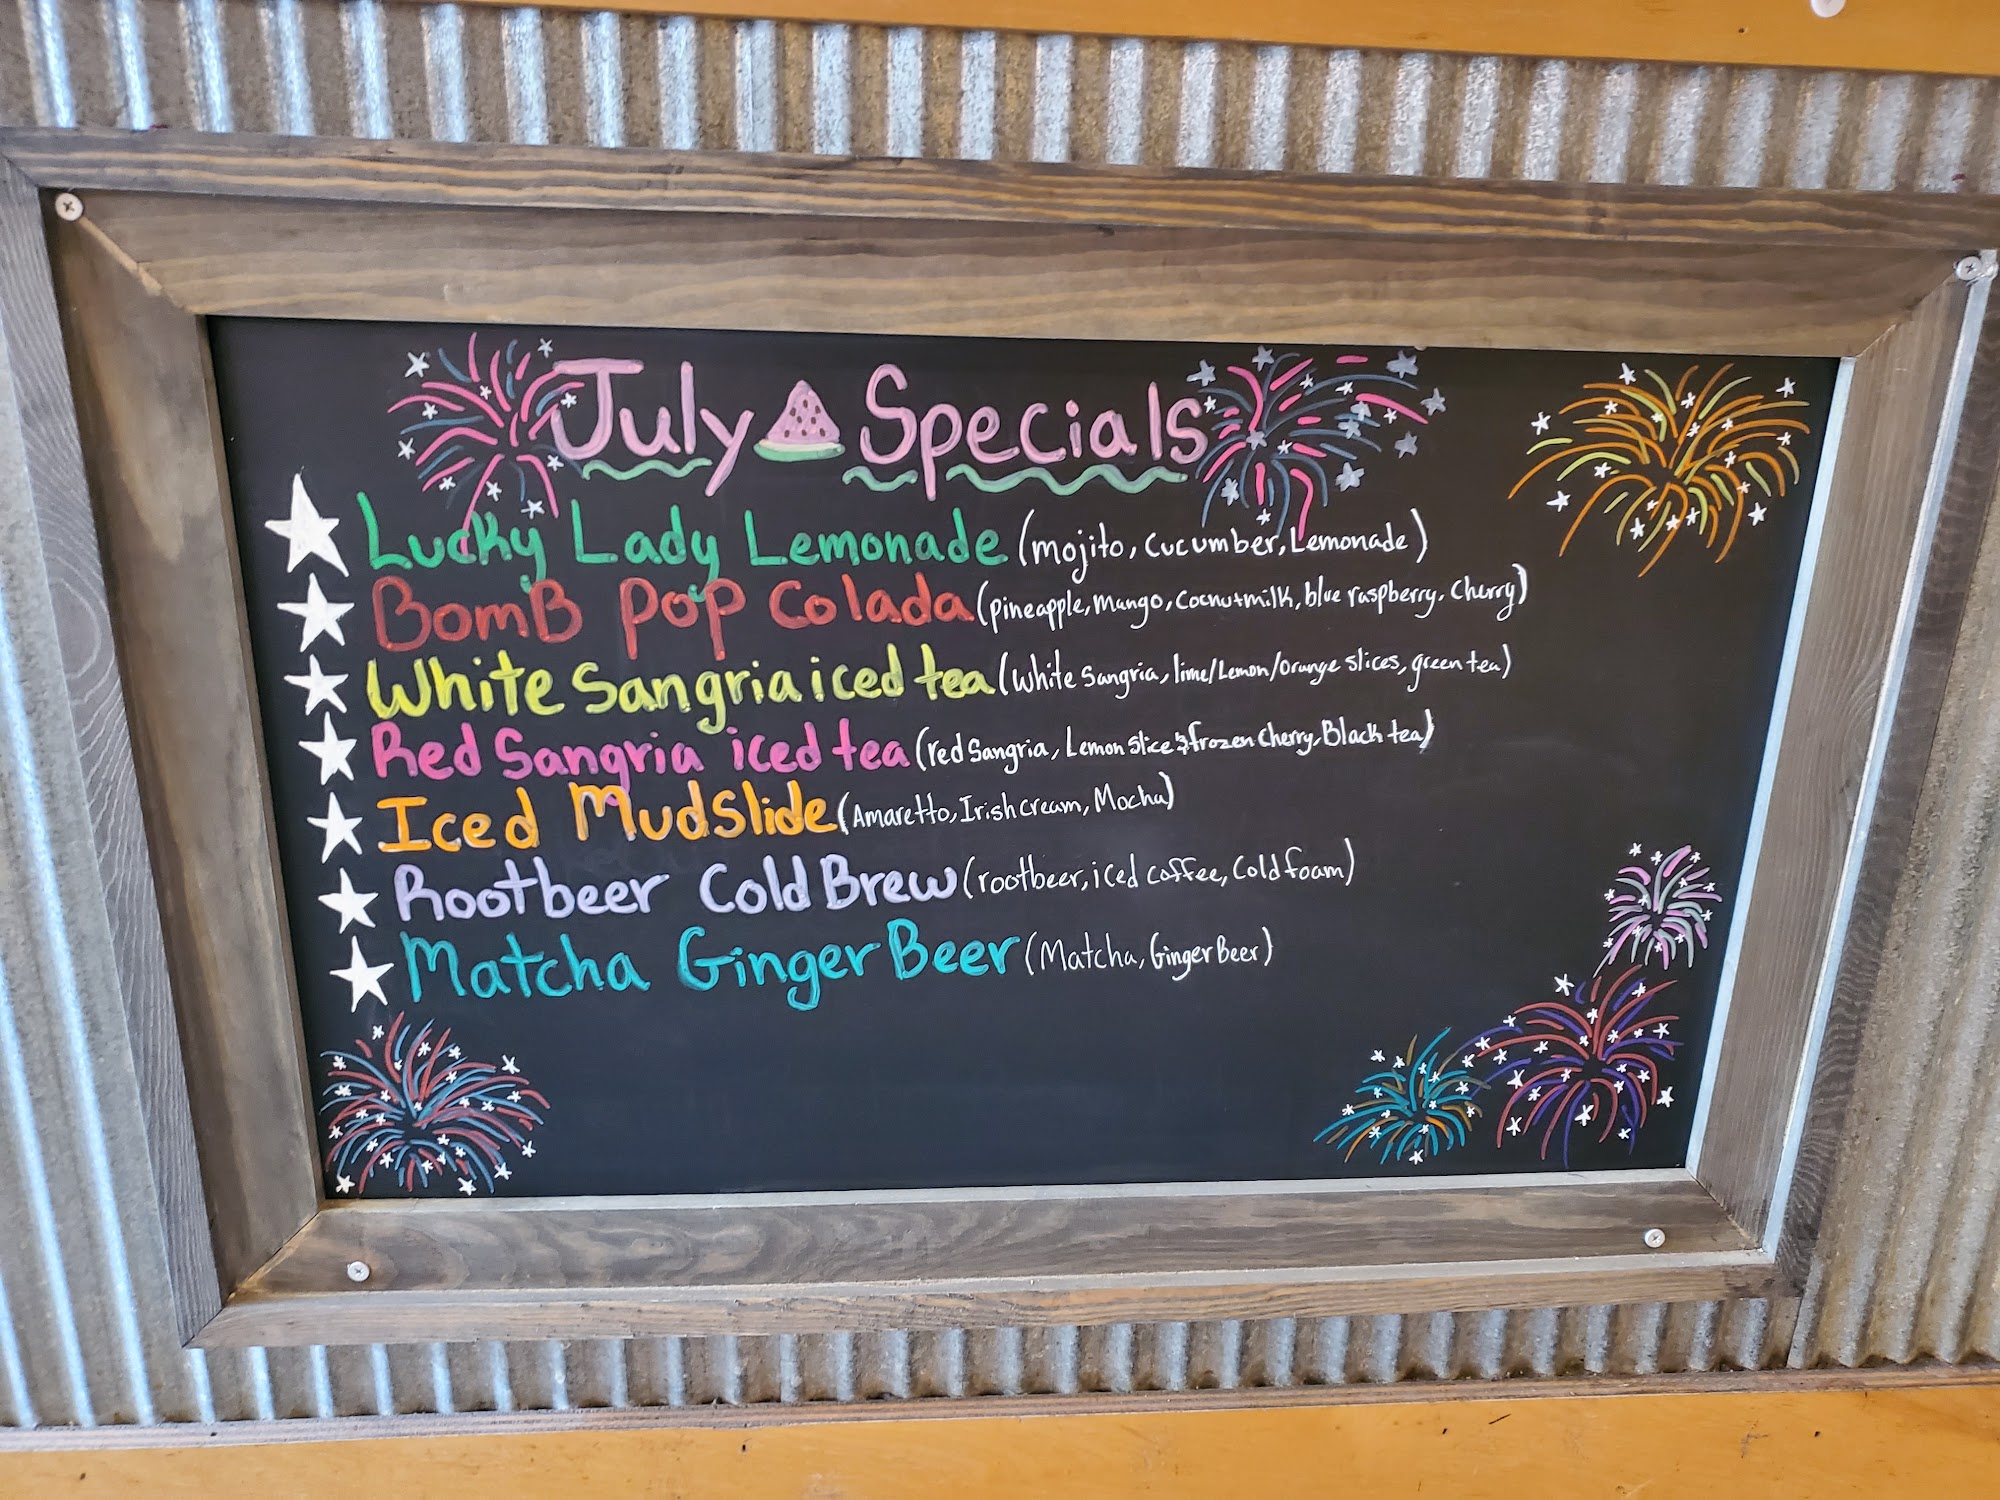 July Specials
Lucky Lady Lemonade (mojito, Cucumber, Lemonade)
BomB Pop Colada (pineapple, Mango, Cocnutmilk, blue raspberry. Cherry)
White Sangria iced tea (White Sangria, lime/Lemon/Orange slices, green tea)
Red Sangria iced tea (red Sangria, Lemon Slice & frozen Cherry, Black tea)
Iced Mudslide (Amaretto, Irish cream, Mocha)
Rootbeer Cold Brew (rootbeer, iced coffee, Cold foam)
Matcha Ginger Beer (Matcha, Ginger Beer)